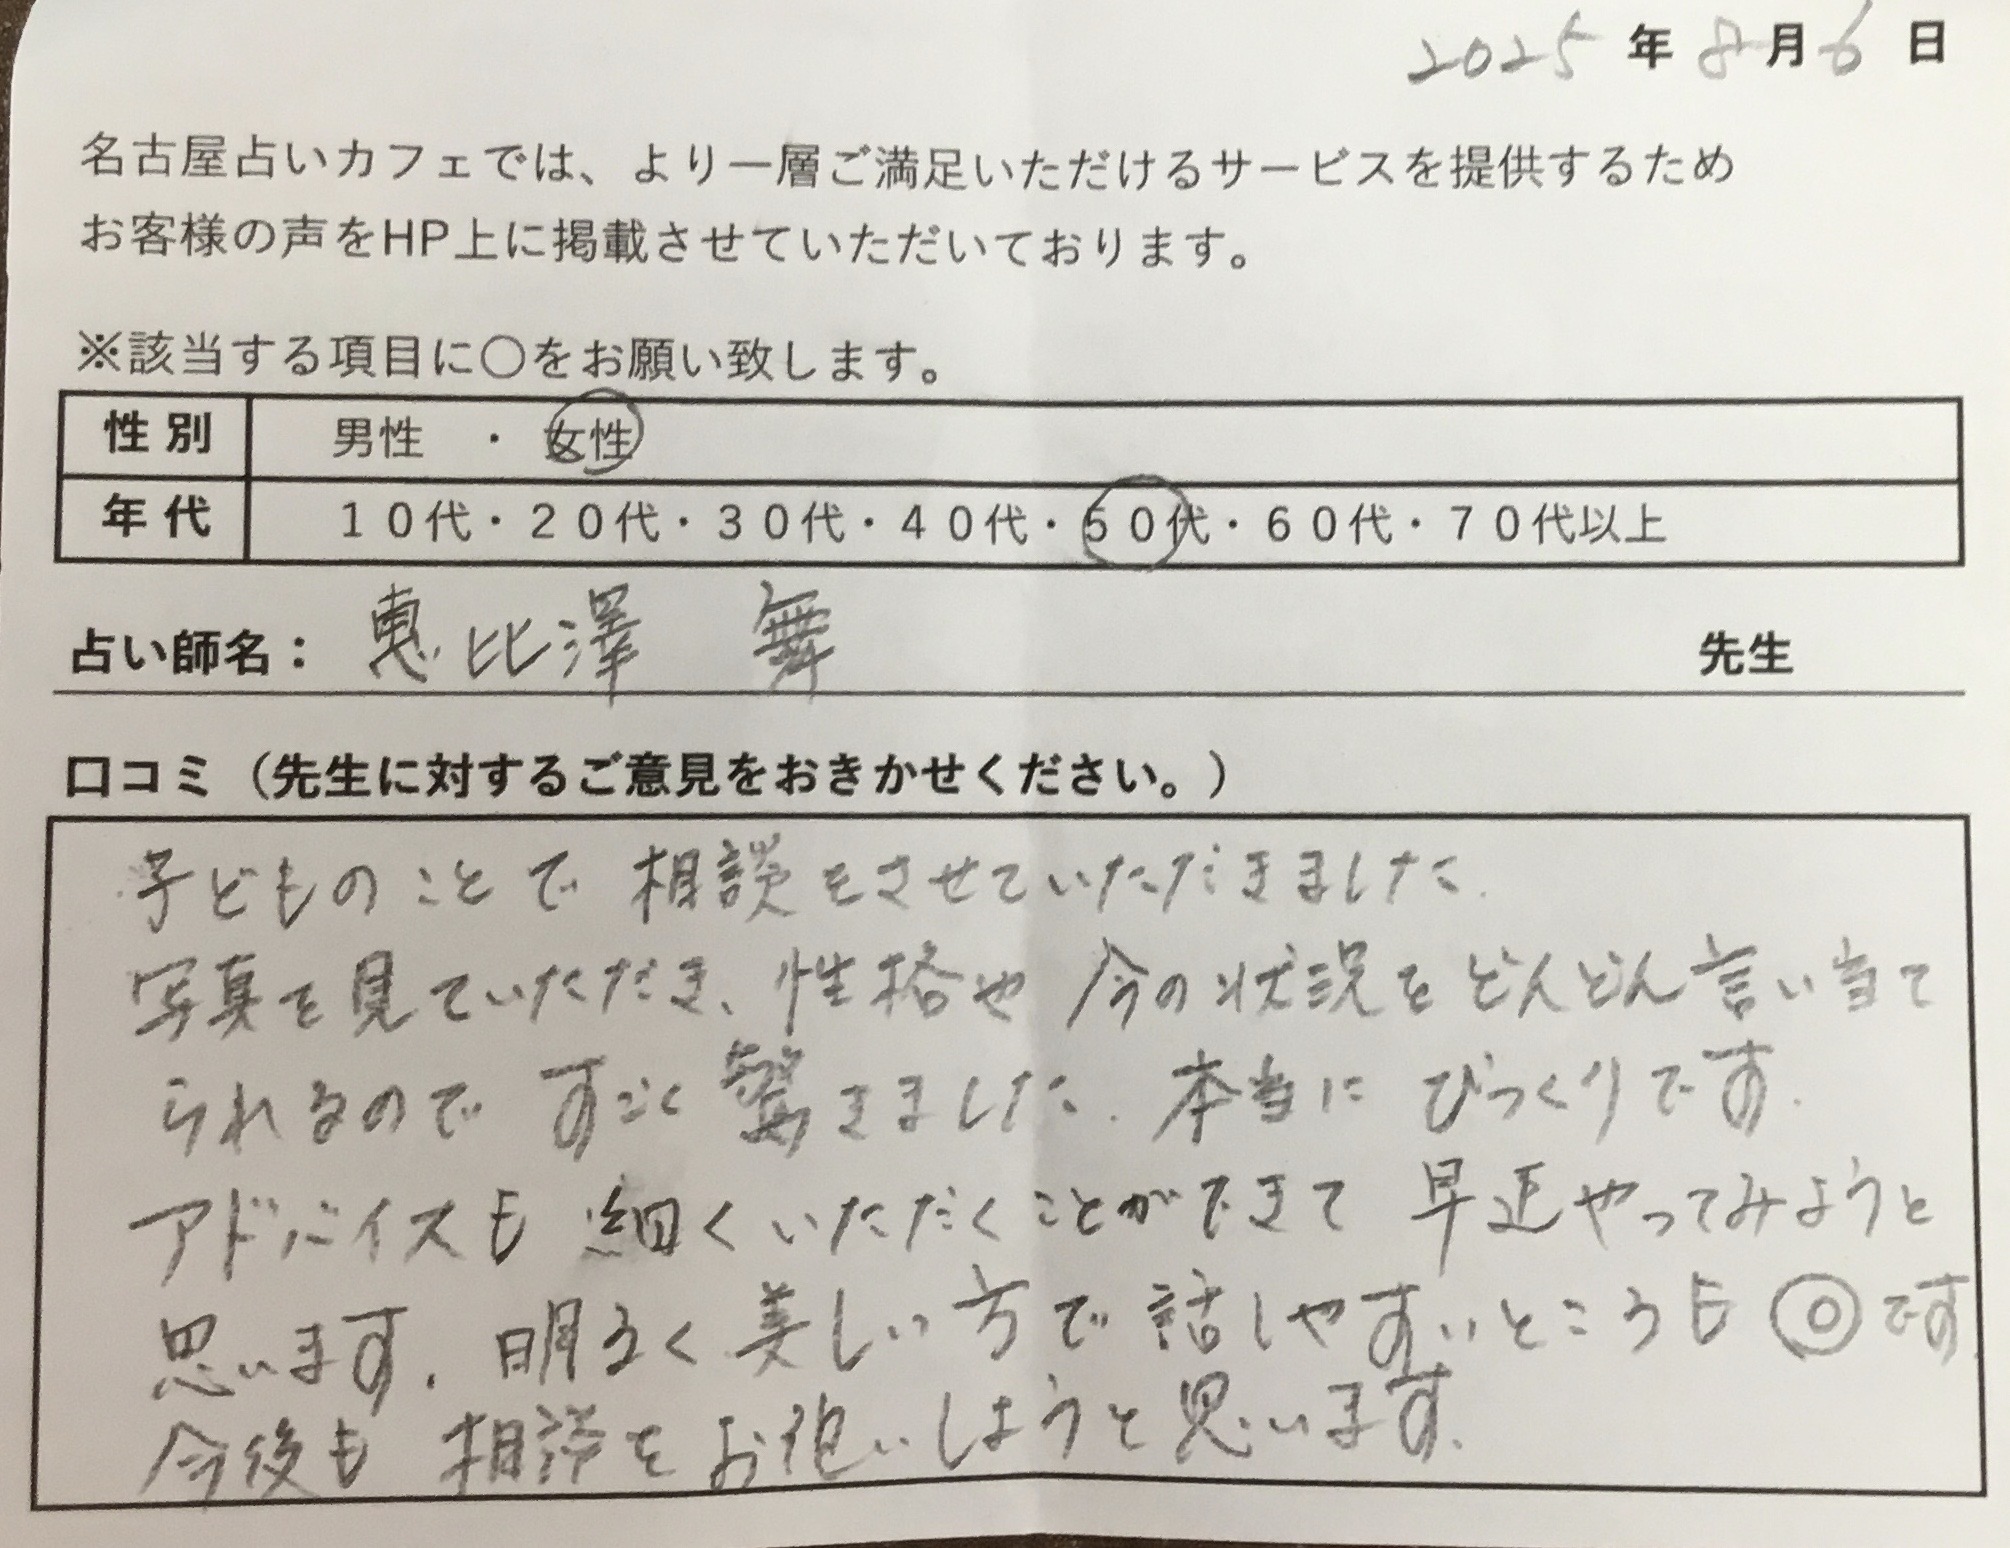 2025年8月6日
名古屋占いカフェでは、より一層ご満足いただけるサービスを提供するため
お客様の声をHP上に掲載させていただいております。
※該当する項目に〇をお願い致します。
性別 男性 ・ 女性
年代 10代・20代・30代・40代・50代・60代・70代以上
占い師名： 恵比澤 舞 先生
口コミ（先生に対するご意見をおきかせください。）
子どものことで相談をさせていただきました.
写真を見ていただき、性格や今の状況をどんどん言い当て
られるのですごく驚きました. 本当にびっくりです.
アドバイスも細くいただくことができて早速やってみようと
思います. 明るく美しい方で話しやすいところも◎です.
今後も相談をお願いしようと思います.